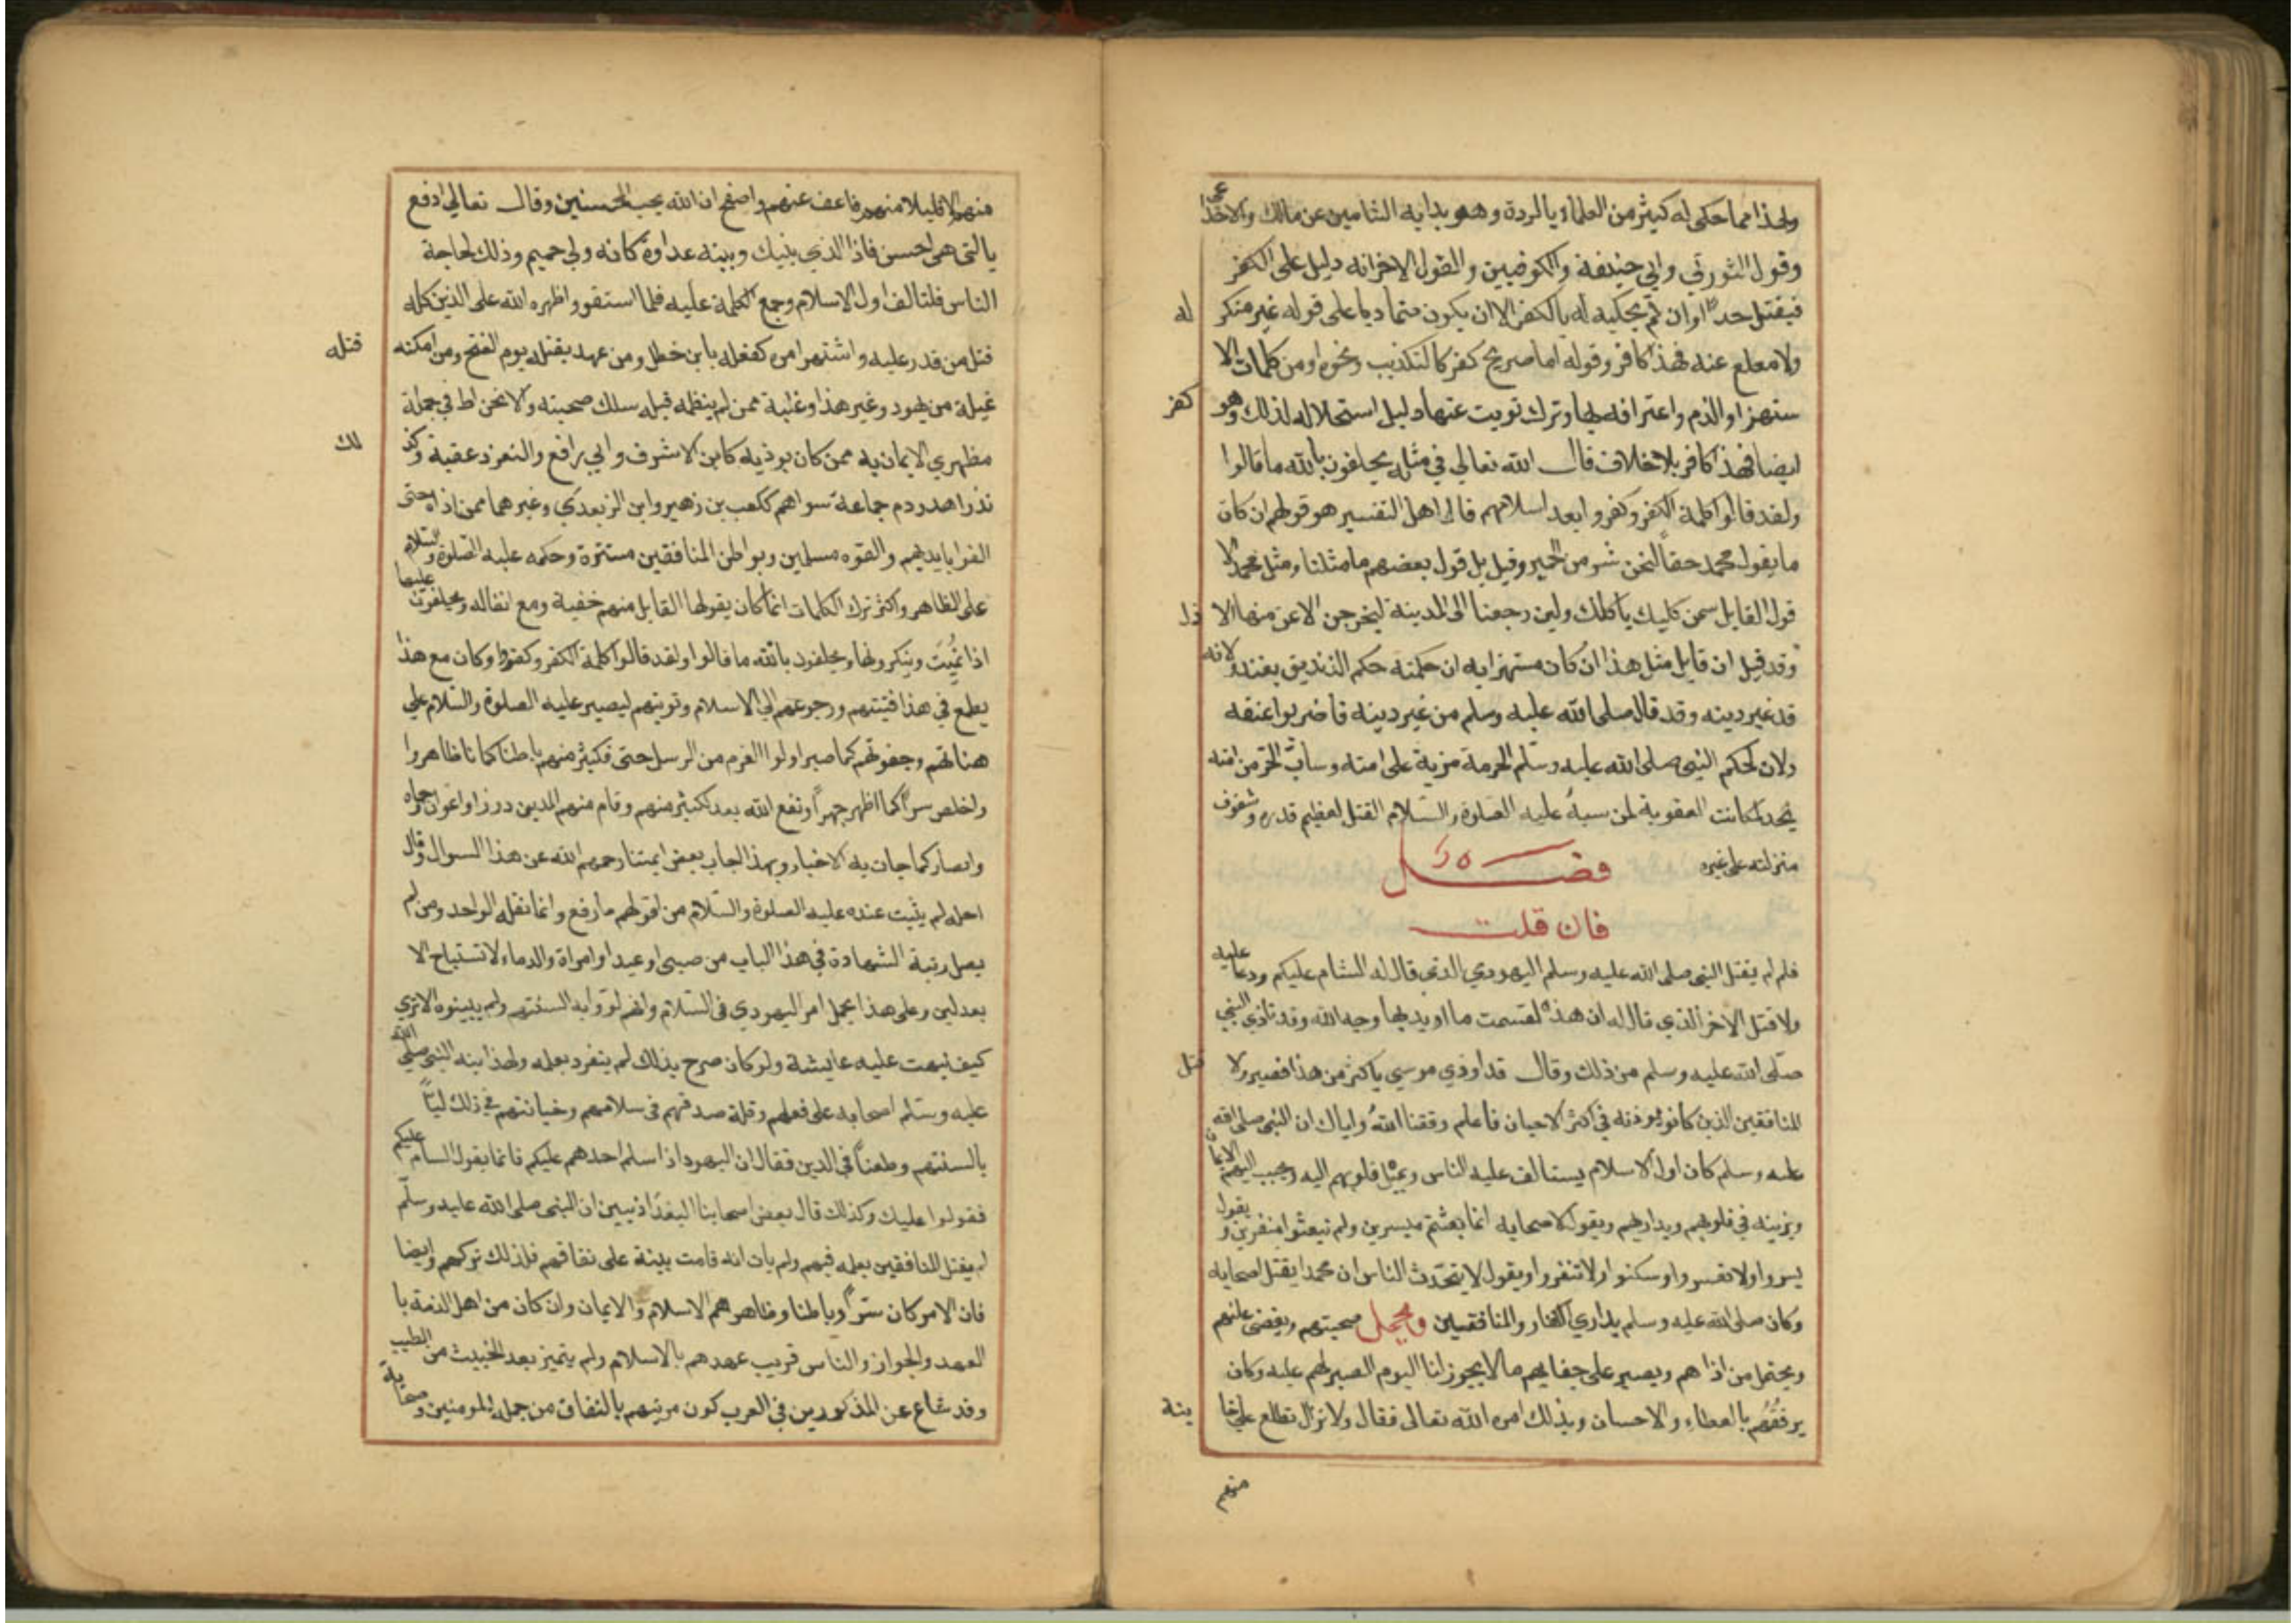 ولهذا مما حكى له كثير من العلماء بالردة وهو بداية الشامين عن مالك والاخذا عي
وقول الثوري وابي حنيفة والكوفيين والقول الاخر انه دليل على الكفر
فيقتل حدا وان لم يحكيه له بالكفر الا ان يكون متماديا على قوله غير منكر له
ولا مقلع عنه فهذا كافر وقوله اما صريح كفر كالتكذيب ونحوه او من كلمات الا
ستهزاء والذم واعترافه بها وترك توبت عنها دليل استحلاله لذلك وهو كفر
ايضا فهذا كافر بلا خلاف قال الله تعالى في مثله يحلفون بالله ما قالوا
ولقد قالوا كلمة الكفر وكفروا بعد اسلامهم قال اهل التفسير هو قولهم ان كان
ما يقول محمد حقا لنحن شر من الحمير وقيل بل قول بعضهم ما مثلنا ومثل محمد الا
قول القايل سمن كلبك ياكلك ولين رجعنا الى المدينة ليخرجن الاعز منها الا ذل
وقد قيل ان قايل مثل هذا ان كان مستهزا به ان حكمته حكم الزنديق يقتل ولانه
قد غير دينه وقد قال صلى الله عليه وسلم من غير دينه فاضربوا عنقه
ولان لحكم النبي صلى الله عليه وسلم الحرمة مزية على امته وساب الحر من امته
يحد فكانت العقوبة لمن سبه عليه الصلوة والسلام القتل لعظيم قدره وشفوف
منزلته على غيره فصل
فان قلت
فلم لم يقتل النبي صلى الله عليه وسلم اليهودي الذي قال له السام عليكم ودعا عليه
ولا قتل الاخر الذي قال له ان هذه لقسمت ما اريد بها وجه الله وقد تاذي النبي
صلى الله عليه وسلم من ذلك وقال قد اوذي موسى باكثر من هذا فصبر ولا قتل
المنافقين الذين كانوا يوذنه في اكثر الاحيان فاعلم وفقنا الله واياك ان النبي صلى الله
عليه وسلم كان اول الاسلام يستالف عليه الناس ويميل قلوبهم اليه ويحبب اليهم الايمان
ويزينه في قلوبهم ويداريهم ويقول لاصحابه انما بعثتم ميسرين ولم تبعثوا منفرين ويقول
يسروا ولا تعسروا وسكنوا ولا تنفروا ويقول لا يتحدث الناس ان محمدا يقتل اصحابه
وكان صلى الله عليه وسلم يداري الكفار والمنافقين ويجمل صحبتهم ويغضي عنهم
ويحتمل من اذاهم ويصبر على جفايهم ما لا يجوز لنا اليوم الصبر لهم عليه وكان
يرفقهم بالعطاء والاحسان وبذلك امره الله تعالى فقال ولا تزال تطلع على خا ينة
منهم
منهم الا قليلا منهم فاعف عنهم واصفح ان الله يحب المحسنين وقال تعالى ادفع
بالتي هي احسن فاذا الذي بينك وبينه عداوة كانه ولي حميم وذلك لحاجة
الناس فلتالف اول الاسلام وجمع الكلمة عليه فلما استقر واظهره الله على الدين كله
قتل من قدر عليه واشتهر امره كفعله بابن خطل ومن عهد بقتله يوم الفتح ومن امكنه قتله
غيلة من يهود وغير هذا وغلبة ممن لم ينظمه قبله سلك صحبته والانخراط في جملة
مظهري الايمان به ممن كان يوذيه كابن الاشرف وابي رافع والنضر وعقبة وكذ لك
نذر اهدر دم جماعة سواهم ككعب بن زهير وابن الزبعري وغيرهما ممن اذاه حتى
القوا بايديهم والقوه مسلمين وبواطن المنافقين مستترة وحكمه عليه الصلوة والسلام
على الظاهر واكثر ترك الكلمات انما كان يقولها القايل منهم خفية ومع انقاله ويحلفون عليها
اذا نميت وينكرونها ويحلفون بالله ما قالوا ولقد قالوا كلمة الكفر وكفروا وكان مع هذا
يطمع في هذا فيئتهم ورجوعهم الى الاسلام وتوبتهم ليصبر عليه الصلوة والسلام على
هناتهم وجفوتهم كما صبر اولوا العزم من الرسل حتى فكثير منهم باطنا كما نا ظاهروا
واخلص سرا كما اظهر جهرا ونفع الله بعد لكثير منهم وقام منهم الدين وزراء واعوان وحماه
وانصار كما جات به الاخبار وبهذا اجاب بعض ايمتنا رحمهم الله عن هذا السوال وقال
احله لم يثبت عنده عليه الصلوة والسلام من اقولهم ما رفع وانما نقله الواحد ومن لم
يصل رتبة الشهادة في هذا الباب من صبي او عبد او امراة والدماء لا تستباح الا
بعدلين وعلى هذا يحمل امر اليهودي في السلام وانهم لووا به السنتهم ولم يبينوه الا تري
كيف نبهت عليه عايشة ولو كان صرح بذلك لم ينفرد بعلمه ولهذا نبه النبي صلى الله
عليه وسلم اصحابه على فعلهم وقلة صدقهم في سلامهم وخيانتهم في ذلك ليا
بالسنتهم وطعنا في الدين فقال ان اليهود اذا سلم احدهم عليكم فانما يقول السام عليكم
فقولوا عليك وكذلك قال بعض اصحابنا البغداذيين ان النبي صلى الله عليه وسلم
لم يقتل المنافقين بعلمه فيهم ولم يات انه قامت بينة على نفاقهم فلذلك تركهم وايضا
فان الامر كان سرا وباطنا وظاهرهم الاسلام والايمان وان كان من اهل الذمة با
العهد والجوار والناس قريب عهدهم بالاسلام ولم يتميز بعد الخبيث من الطيب
وقد شاع عن المذكورين في العرب كون من يتهم بالنفاق من جملة المومنين وصحابة